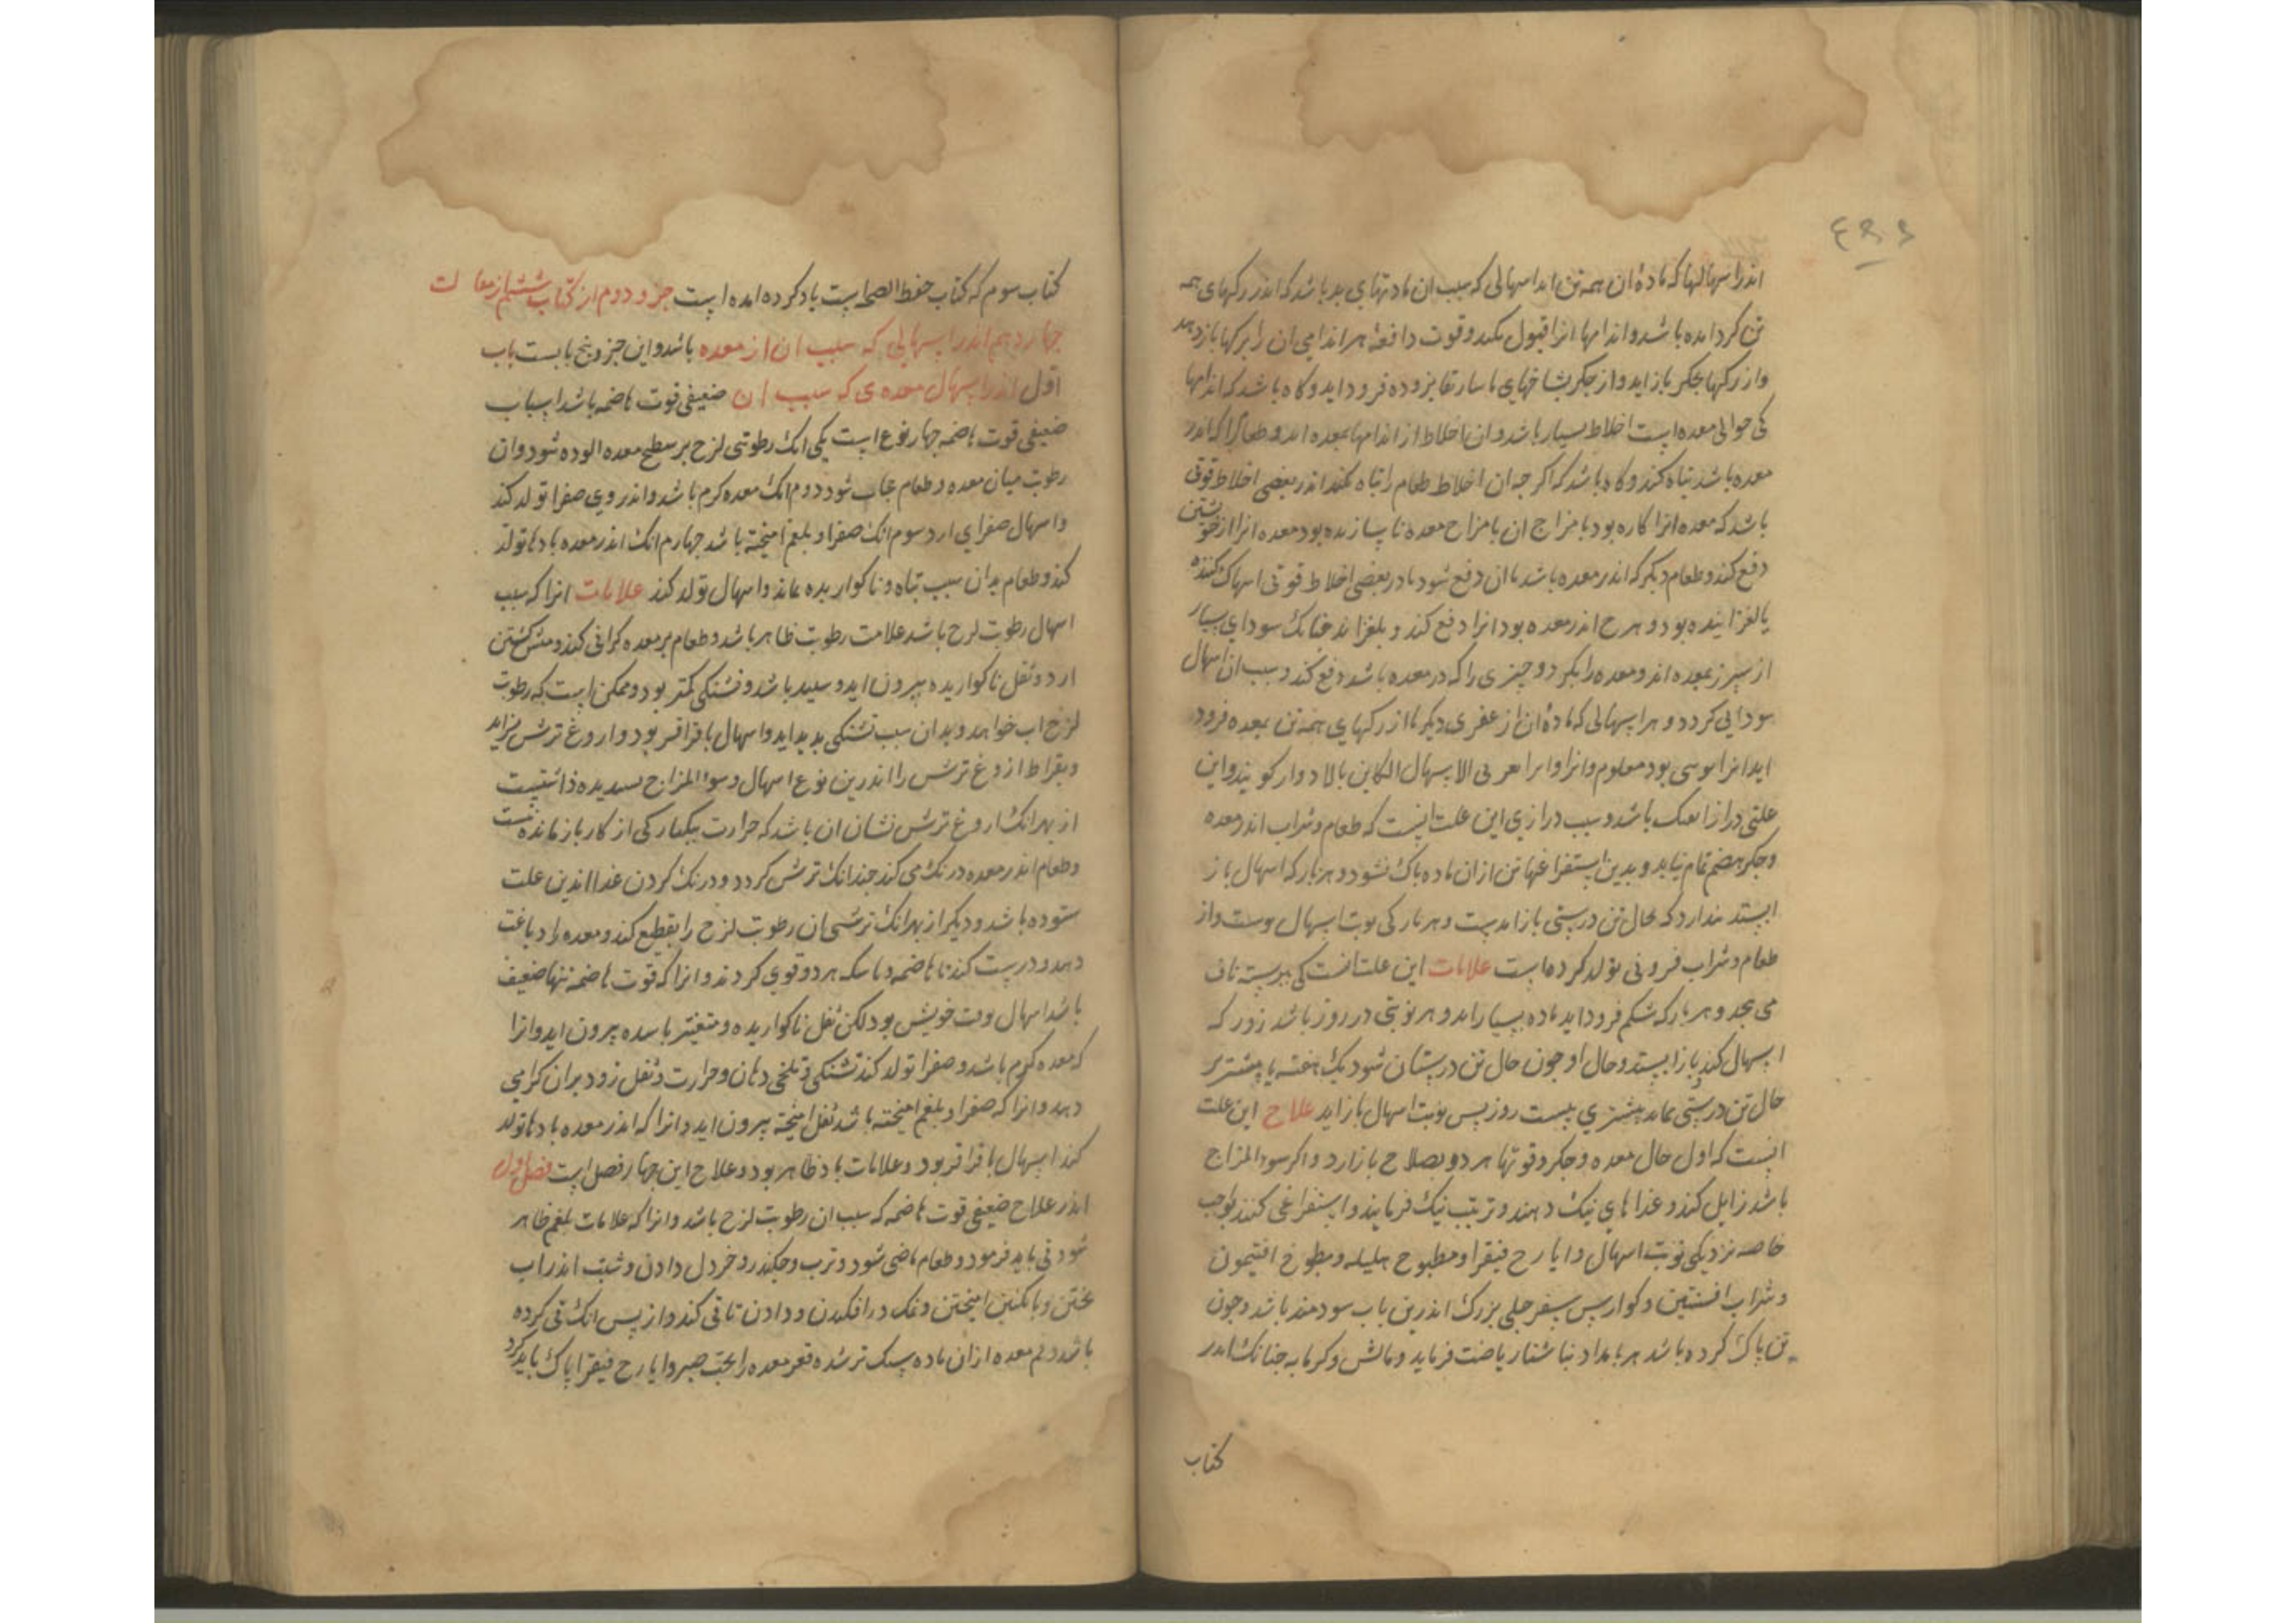 اندر اسهالها که ماده ان همه تن اید اسهالی که سبب ان مادتهای بد باشد که اندر رکهای همه
تن کرد امده باشد و اندامها انرا قبول نکند و قوت دافعه هر اندامی ان را برکها باز دهد
و از رکها بجکر باز اید و از جکر بشاخهای ماساریقا بروده فرود اید و کاه باشد که اندامها
کی حوالی معده است اخلاط بسیار باشد و ان اخلاط از اندامها بمعده اید و طعام را که اندر
معده باشد تباه کند و کاه باشد که اکر جه ان اخلاط طعام را تباه نکند اندر بعضی اخلاط قوتی
باشد که معده انرا کاره بود یا مزاج ان با مزاج معده ناسازنده بود معده انرا از خویشتن
دفع کند و طعام دیکر که اندر معده باشد با ان دفع شود یا در بعضی اخلاط قوتی اسهال کننده
یا لغزاینده بود و هر ج اندر معده بود انرا دفع کند و بلغزاند جنانک سودای بسیار
از سپرز بمعده اید و معده را بکزد و جیزی را که در معده باشد دفع کند و سبب ان اسهال
سودایی کردد و هر اسهالی که ماده ان از عضوی دیکر یا از رکهای همه تن بمعده فرود
اید انرا نوبتی بود معلوم و انرا الاسهال الکاین بالادوار کویند و این
علتی دراز اهنک باشد و سبب درازی این علت انست که طعام و شراب اندر معده
و جکر هضم تمام نیابد و بدین استفراغها تن ازان ماده پاک نشود و هر بار که اسهال باز
ایستد پندارد که بحال تن درستی باز امدست و هر بار کی نوبت اسهال بوست و از
طعام و شراب فزونی تولد کرده است علامات این علت انست کی پیوسته ناف
می بجد و هر بار که شکم فرود اید ماده بسیار اید و هر نوبتی در روز باشد زور که
اسهال کند باز ایستد و حال او جون حال تن درستان شود یک هفته یا بیشتر بر
حال تن درستی بماند بیشتری بیست روز بس نوبت اسهال باز اید علاج این علت
انست که اول حال معده و جکر و قوتها هر دو بصلاح باز ارد و اکر سوء المزاج
باشد زایل کند و غذاهای نیک دهند و ترتیب نیک فرمایند و استفراغی کنند بواجب
خاصه نزدیکی نوبت اسهال و ایارج فیقرا و مطبوح هلیله و مطبوخ افتیمون
و شراب افسنتین و کوارس سفرجلی بزرک اندرین باب سودمند باشد و جون
تن پاک کرده باشد هر بامداد ناشتا ریاضت فرماید و مالش و کرمابه جنانک اندر
کتاب
کتاب سوم که کتاب حفظ الصحه است یاد کرده امده است جزو دوم از کتاب ششم از مقالت
جهاردهم اندر اسهالی که سبب ان از معده باشد و این جزو پنج باب است باب
اول اندر اسهال معدی که سبب ان ضعیفی قوت هاضمه باشد اسباب
ضعیفی قوت هاضمه جهار نوع است یکی انک رطوبتی لزج بر سطح معده الوده شود و ان
رطوبت میان معده و طعام حجاب شود دوم انک معده کرم باشد و اندر وی صفرا تولد کند
و اسهال صفرای ارد سوم انک صفرا و بلغم امیخته باشد جهارم انک اندر معده بادها تولد
کند و طعام بدان سبب تباه و ناکواریده بماند و اسهال تولد کند علامات انرا که سبب
اسهال رطوبت لزج باشد علامت رطوبت ظاهر باشد و طعام بر معده کرانی کند و منش کشتن
ارد و ثفل ناکواریده بیرون اید و سپید باشد و تشنکی کمتر بود و ممکن است که رطوبت
لزج اب خواهد و بدان سبب تشنکی بدید اید و اسهال با قراقر بود و اروغ ترش براید
و بقراط اروغ ترش را اندرین نوع اسهال و سوء المزاج پسندیده داشتست
از بهر انک اروغ ترش نشان ان باشد که حرارت بیکبارکی از کار باز نمانده است
و طعام اندر معده درنک می کند جندانک ترش کردد و درنک کردن غذا اندرین علت
ستوده باشد و دیکر از بهر انک ترشی ان رطوبت لزج را تقطیع کند و معده را دباغت
دهد و درست کند تا هاضمه و ماسکه هر دو قوی کردند و انرا که قوت هاضمه تنها ضعیف
باشد اسهال بوقت خویش بود لکن ثفل ناکواریده و متغیر باسده بیرون اید و انرا
که معده کرم باشد و صفرا تولد کند تشنکی و تلخی دهان و حرارت و ثفل زود بران کرامی
دهد و انرا که صفرا و بلغم امیخته باشد ثفل امیخته بیرون اید و انرا که اندر معده بادها تولد
کند اسهال با قراقر بود و علامات باد ظاهر بود و علاج این جهار فصل است فصل اول
اندر علاج ضعیفی قوت هاضمه که سبب ان رطوبت لزج باشد و انرا که علامات بلغم ظاهر
شود قی باید فرمود و طعام ماضی شود و ترب و جکندر و خردل دادن و شبت اندر اب
بختن و با سکنکبین امیختن و نمک در افکندن و دادن تا قی کند و از پس انک قی کرده
باشد و فم معده ازان ماده سبک تر شده قعر معده را بحب صبر و ایارج فیقرا پاک باید کرد